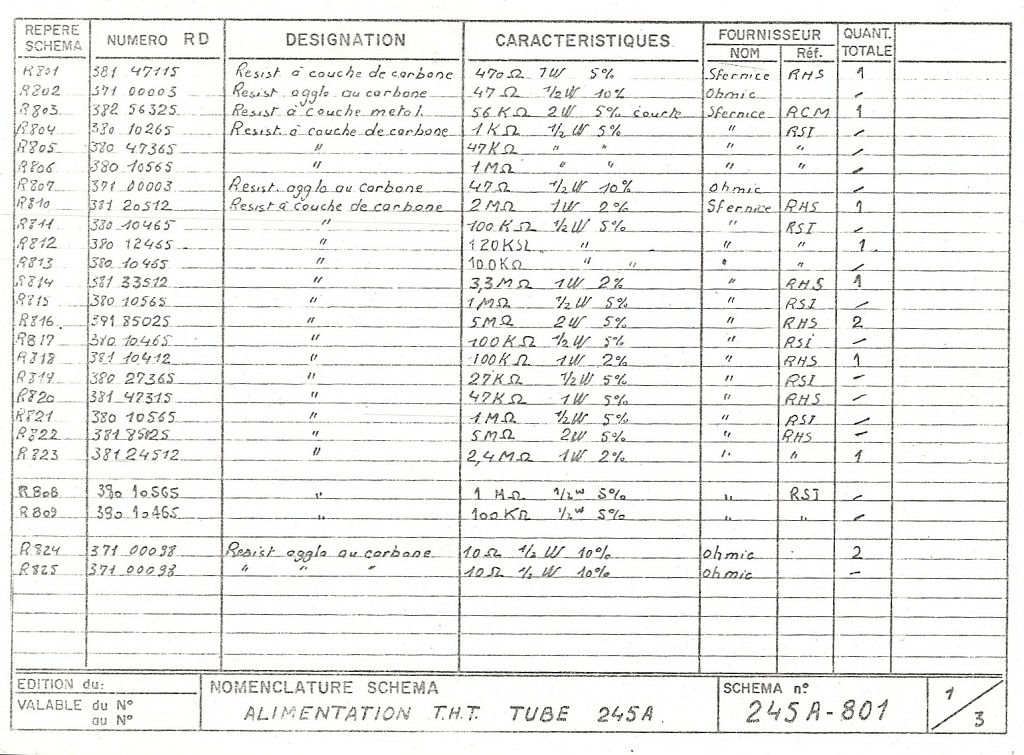 REPERE SCHEMA NUMERO RD DESIGNATION CARACTERISTIQUES FOURNISSEUR NOM Réf. QUANT. TOTALE
R801 381 47115 Resist à couche de carbone 470Ω 1W 5% Sfernice RHS 1
R802 371 00003 Resist agglo au carbone 47Ω 1/2W 10% Ohmic -
R803 382 56325 Resist à couche metal. 56KΩ 2W 5% courte Sfernice RCM 1
R804 380 10265 Resist à couche de carbone 1KΩ 1/2W 5% " RSI -
R805 380 47365 " 47KΩ " " " " -
R806 380 10565 " 1MΩ " " " " -
R807 371 00003 Resist agglo au carbone 47Ω 1/2W 10% Ohmic -
R810 381 20512 Resist à couche de carbone 2MΩ 1W 2% Sfernice RHS 1
R811 380 10465 " 100KΩ 1/2W 5% " RSI -
R812 380 12465 " 120KΩ " " " 1
R813 380 10465 " 100KΩ " " " " -
R814 381 33512 " 3,3MΩ 1W 2% " RHS 1
R815 380 10565 " 1MΩ 1/2W 5% " RSI -
R816 391 85025 " 5MΩ 2W 5% " RHS 2
R817 380 10465 " 100KΩ 1/2W 5% " RSI -
R818 381 10412 " 100KΩ 1W 2% " RHS 1
R819 380 27365 " 27KΩ 1/2W 5% " RSI -
R820 381 47315 " 47KΩ 1W 5% " RHS -
R821 380 10565 " 1MΩ 1/2W 5% " RSI -
R822 " 5MΩ 2W 5% " RHS -
R823 381 24512 " 2,4MΩ 1W 2% " " 1
R808 380 10565 " 1MΩ 1/2W 5% " RSI -
R809 380 10465 " 100KΩ 1/2W 5% " " -
R824 371 00098 Resist agglo au carbone 10Ω 1/2W 10% Ohmic 2
R825 371 00098 " " " 10Ω 1/2W 10% Ohmic -
EDITION du: NOMENCLATURE SCHEMA SCHEMA nº 1/3
VALABLE du Nº ALIMENTATION T.H.T. TUBE 245A 245A-801
au Nº